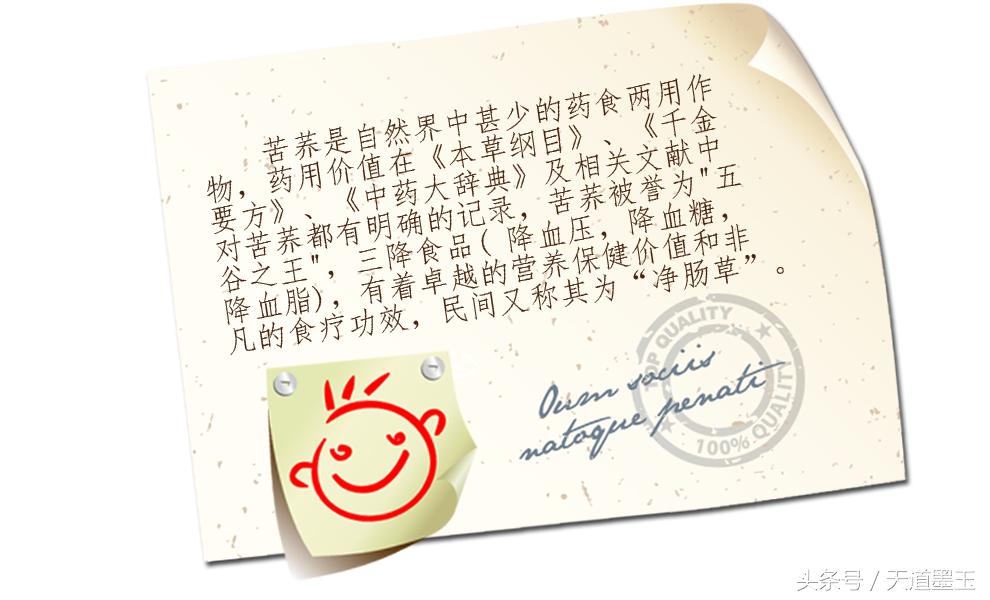 苦荞是自然界中甚少的药食两用作
物，药用价值在《本草纲目》、《千金
要方》、《中药大辞典》及相关文献中
对苦荞都有明确的记录，苦荞被誉为"五
谷之王"，三降食品( 降血压，降血糖，
降血脂)，有着卓越的营养保健价值和非
凡的食疗功效，民间又称其为“净肠草”。
TOP QUALITY
100% QUALITY
Oum sociis
natoque penati
头条号 / 天道墨玉